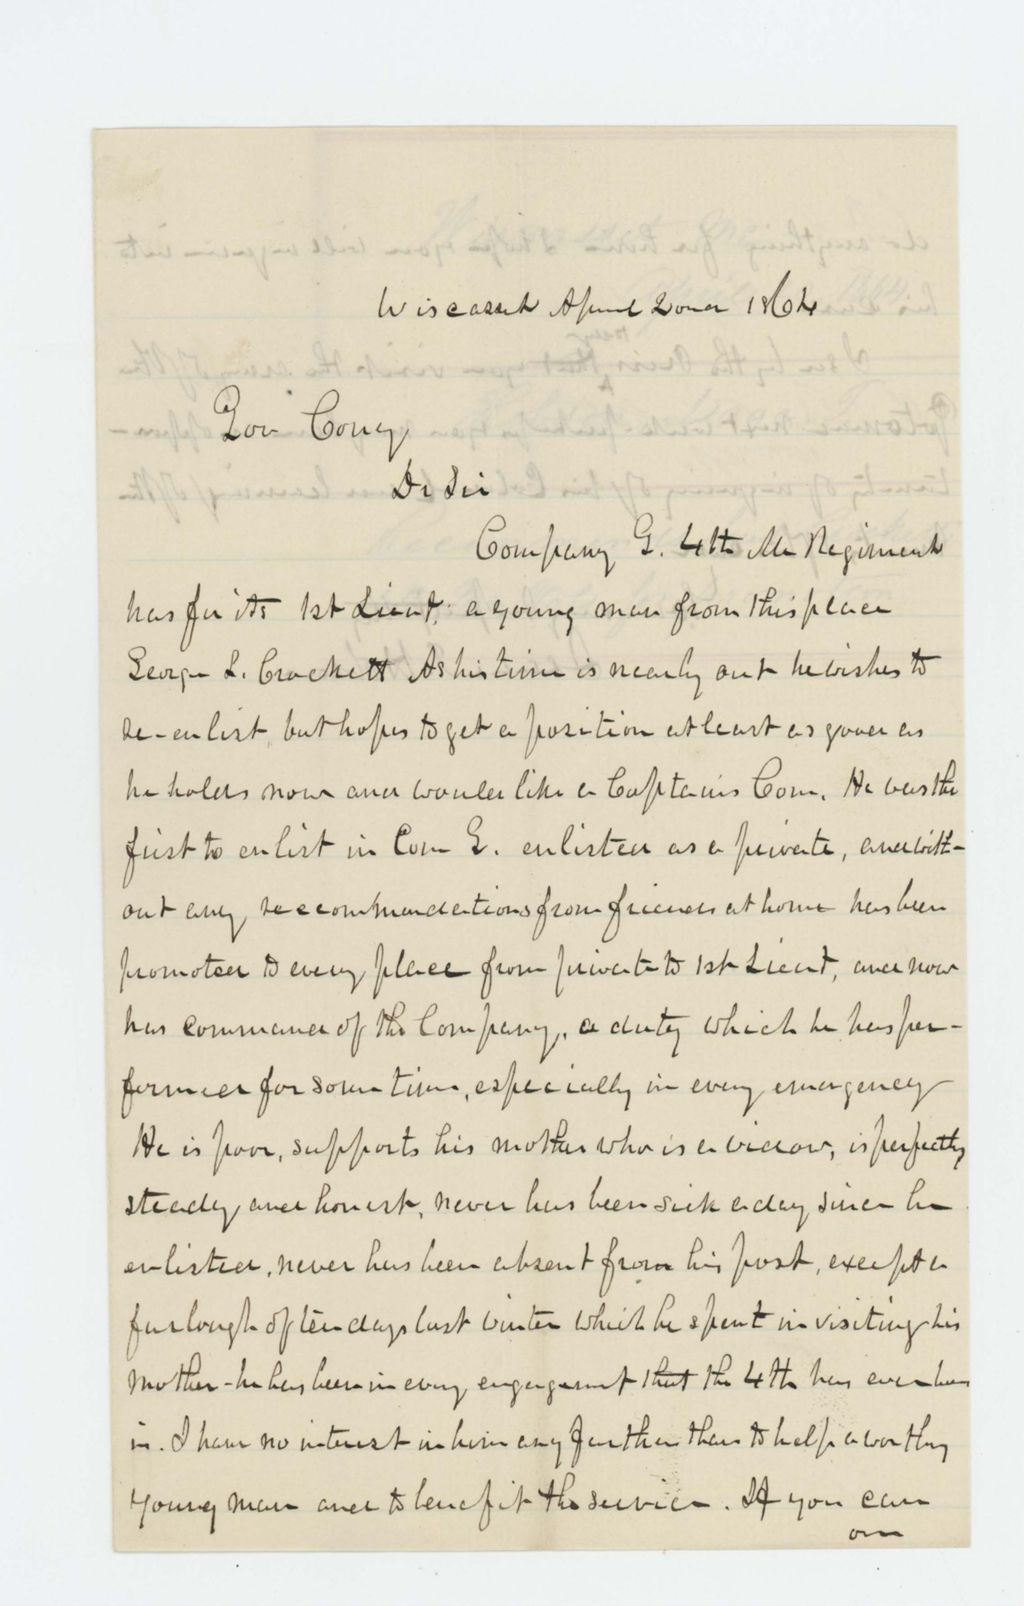 Wiscasset April 22nd 1864
Gov Cony
Dr Sir
Company G. 4th Me Regiment
has for its 1st Lieut, a young man from this place
George L. Crockett As his time is nearly out he wishes to
re-enlist, but hopes to get a position at least as good as
he holds now and would like a Captains Com. He was the
first to enlist in Com G. enlisted as a private, and with-
out any recommendations from friends at home has been
promoted to every place from private to 1st Lieut, and now
has command of the Company, a duty which he has per-
formed for some time, especially in every emergency
He is poor, supports his mother who is a widow, is perfectly
steady and honest, never has been sick a day since he
enlisted, never has been absent from his post, except a
furlough of ten days last winter which he spent in visiting his
mother - he has been in every engagement that the 4th has ever been
in. I have no interest in him any further than to help a worthy
young man and to benefit the service. If you can